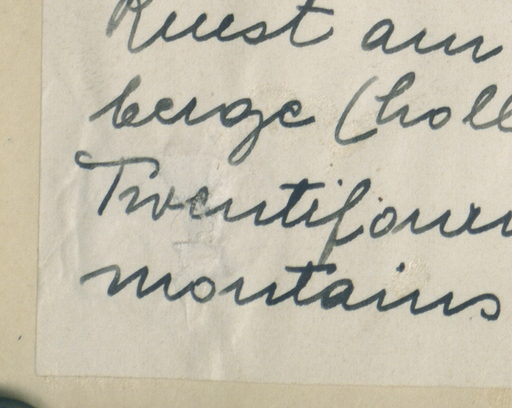 Ruest am
berge (holl
Twentifour
montains